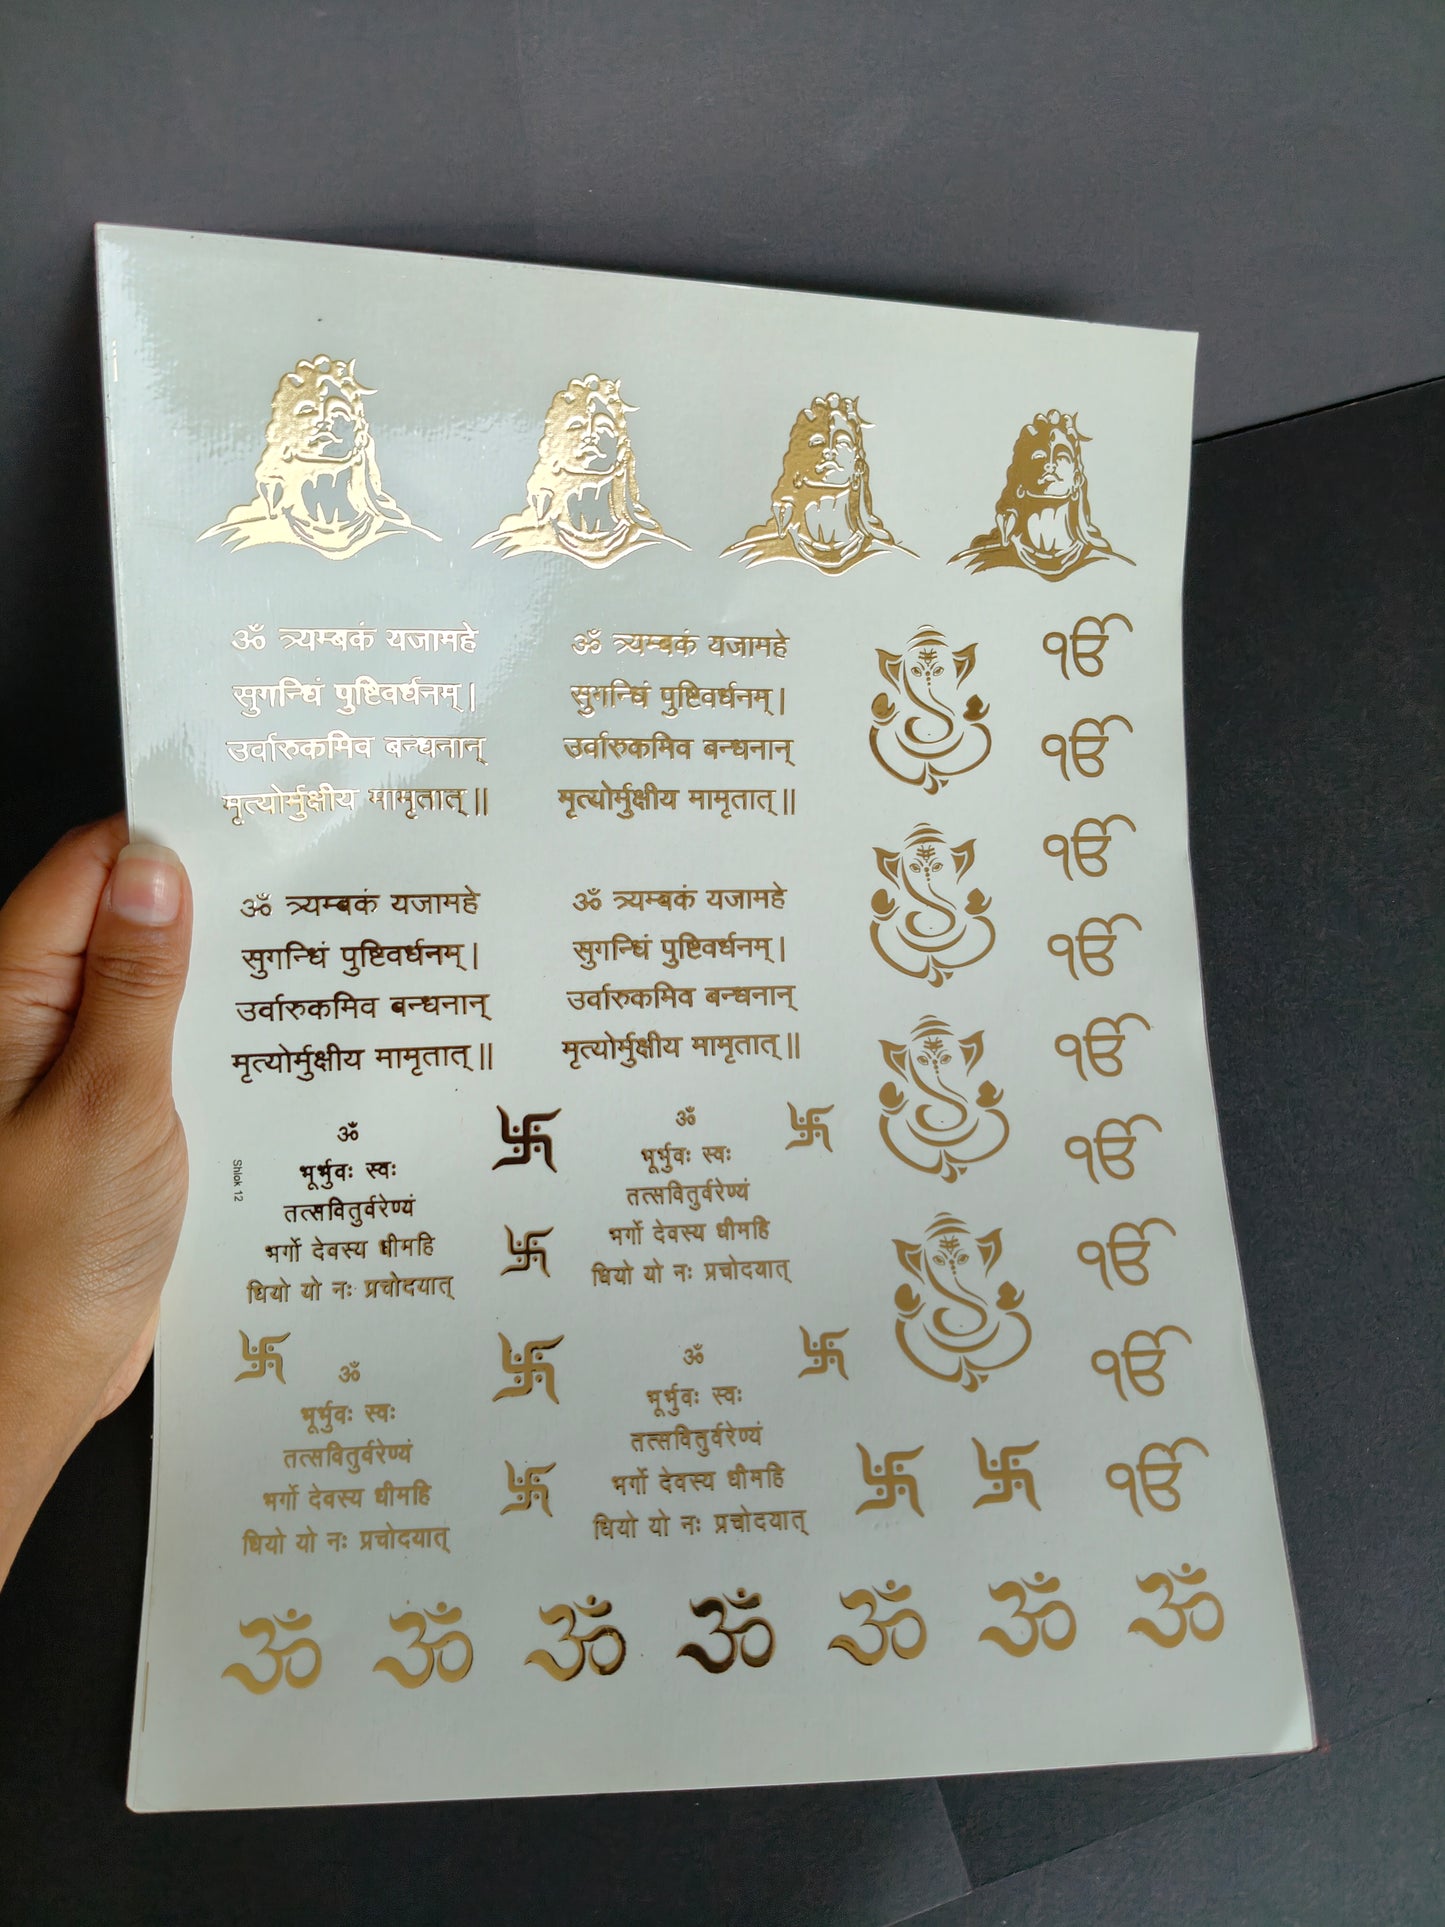 ॐ त्र्यम्बकं यजामहे
सुगन्धिं पुष्टिवर्धनम् |
उर्वारुकमिव बन्धनान्
मृत्योर्मुक्षीय मामृतात् ||
ॐ त्र्यम्बकं यजामहे
सुगन्धिं पुष्टिवर्धनम् |
उर्वारुकमिव बन्धनान्
मृत्योर्मुक्षीय मामृतात् ||
ੴ
ੴ
ੴ
ੴ
ੴ
ੴ
ੴ
ੴ
ੴ
ॐ त्र्यम्बकं यजामहे
सुगन्धिं पुष्टिवर्धनम् |
उर्वारुकमिव बन्धनान्
मृत्योर्मुक्षीय मामृतात् ||
ॐ त्र्यम्बकं यजामहे
सुगन्धिं पुष्टिवर्धनम् |
उर्वारुकमिव बन्धनान्
मृत्योर्मुक्षीय मामृतात् ||
Shlok 12
ॐ
भूर्भुवः स्वः
तत्सवितुर्वरेण्यं
भर्गो देवस्य धीमहि
धियो यो नः प्रचोदयात्
ॐ
भूर्भुवः स्वः
तत्सवितुर्वरेण्यं
भर्गो देवस्य धीमहि
धियो यो नः प्रचोदयात्
ॐ
भूर्भुवः स्वः
तत्सवितुर्वरेण्यं
भर्गो देवस्य धीमहि
धियो यो नः प्रचोदयात्
ॐ
भूर्भुवः स्वः
तत्सवितुर्वरेण्यं
भर्गो देवस्य धीमहि
धियो यो नः प्रचोदयात्
ॐ ॐ ॐ ॐ ॐ ॐ ॐ